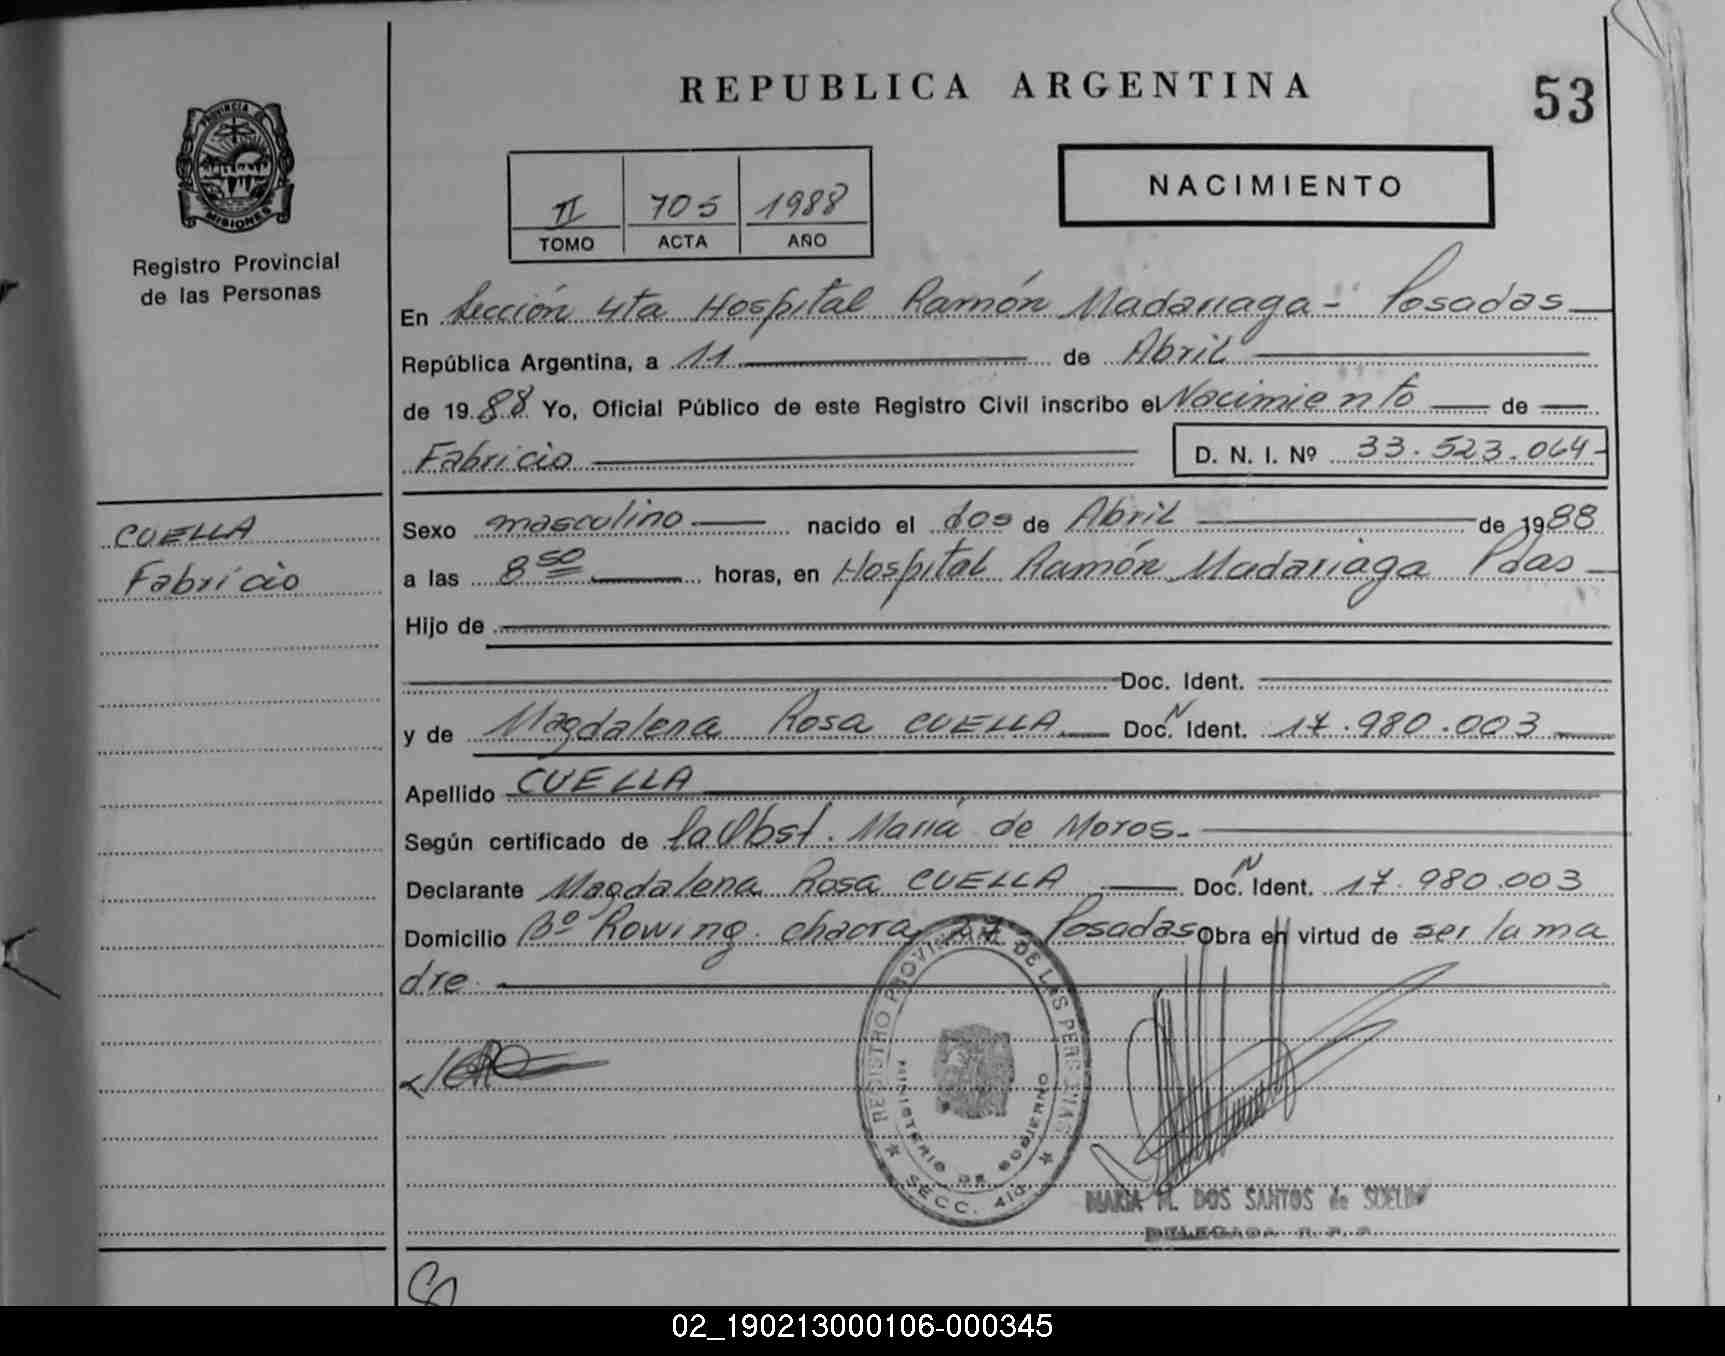 REPUBLICA ARGENTINA
53
PROVINCIA DE
MISIONES
Registro Provincial
de las Personas
II 705 1988
TOMO ACTA AÑO
NACIMIENTO
En Sección 4ta Hospital Ramón Madariaga - Posadas
República Argentina, a 11 de Abril
de 1988 Yo, Oficial Público de este Registro Civil inscribo el Nacimiento de
Fabricio
D. N. I. Nº 33.523.064
CUELLA
Fabricio
Sexo masculino nacido el dos de Abril de 1988
a las 8 50 horas, en Hospital Ramón Madariaga Pdas
Hijo de
Doc. Ident.
y de Magdalena Rosa CUELLA Doc. N Ident. 17.980.003
Apellido CUELLA
Según certificado de la Obst. Maria de Moros.
Declarante Magdalena Rosa CUELLA Doc. N Ident. 17.980.003
Domicilio Bº Rowing. chacra 27 Posadas Obra en virtud de ser la ma
dre
REGISTRO PROVINCIAL DE LAS PERSONAS
MINISTERIO DE GOBIERNO
SECC. 4ta.
MARIA M. DOS SANTOS de
DELEGADA R. P. P.
02_190213000106-000345